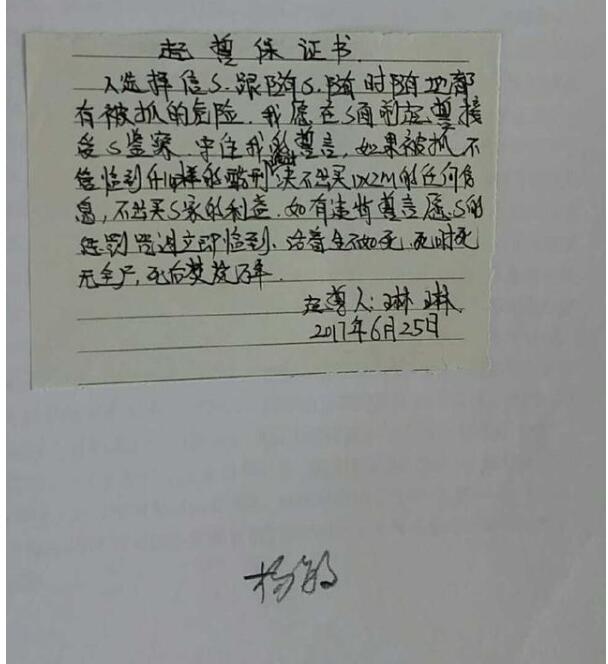 起誓保证书
人选择信S.跟随S.随时随地都
有被抓的危险.我愿在S面前起誓接
受S鉴察.守住我的誓言,如果被抓不
管临到什么样的酷刑决不出卖的任何信
息,不出卖S家的利益.如有违背誓言愿S的
惩罚咒诅立即临到,活着生不如死,死时死
无全尸,死后焚烧万年.
起誓人:琳琳
2017年6月25日